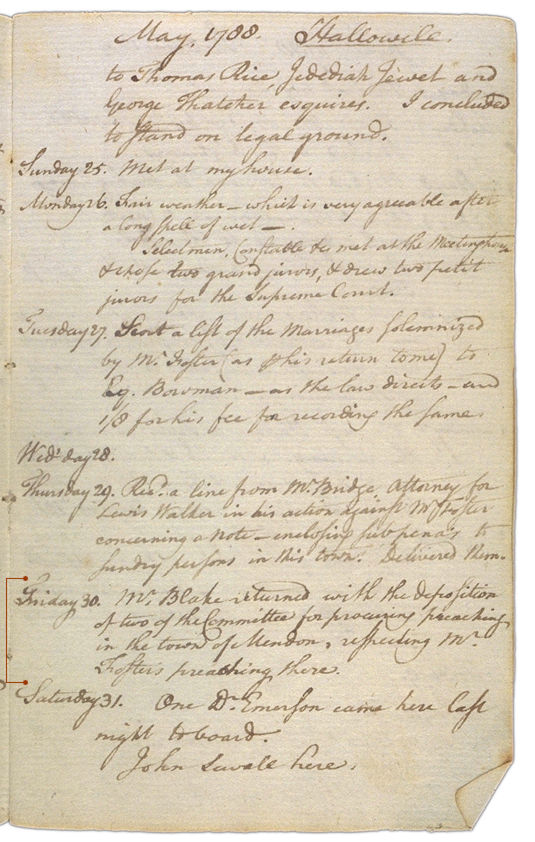 May, 1788. Hallowell.
to Thomas Rice Jedediah Jewet and
George Thatcher esquires. I concluded
to stand on legal ground.
Sunday 25. Met at my house.
Monday 26. Fair weather – which is very agreable after
a long spell of wet –.
Selectmen, Constable &c met at the Meetinghouse
& chose two grand jurors, & drew two petit
jurors for the Supreme Court.
Tuesday 27. Sent a list of the Marriages solemnized
by Mr. Foster (as his return to me) to
Esq. Bowman – as the law directs – and
1/8 for his fee for recording the same.
Wed'day 28.
Thursday 29. Recd. a line from Mr. Bridge, Attorney for
Lewis Walker in his action against Mr Foster
concerning a note – enclosing subpenas to
sundry persons in this town. Delivered them.
Friday 30. Mr. Blake returned with the deposition
of two of the Committee for procuring preaching
in the town of Mendon, respecting Mr.
Foster's preaching there.
Saturday 31. One Dr. Emerson came here last
night to board.
John Sewall here.